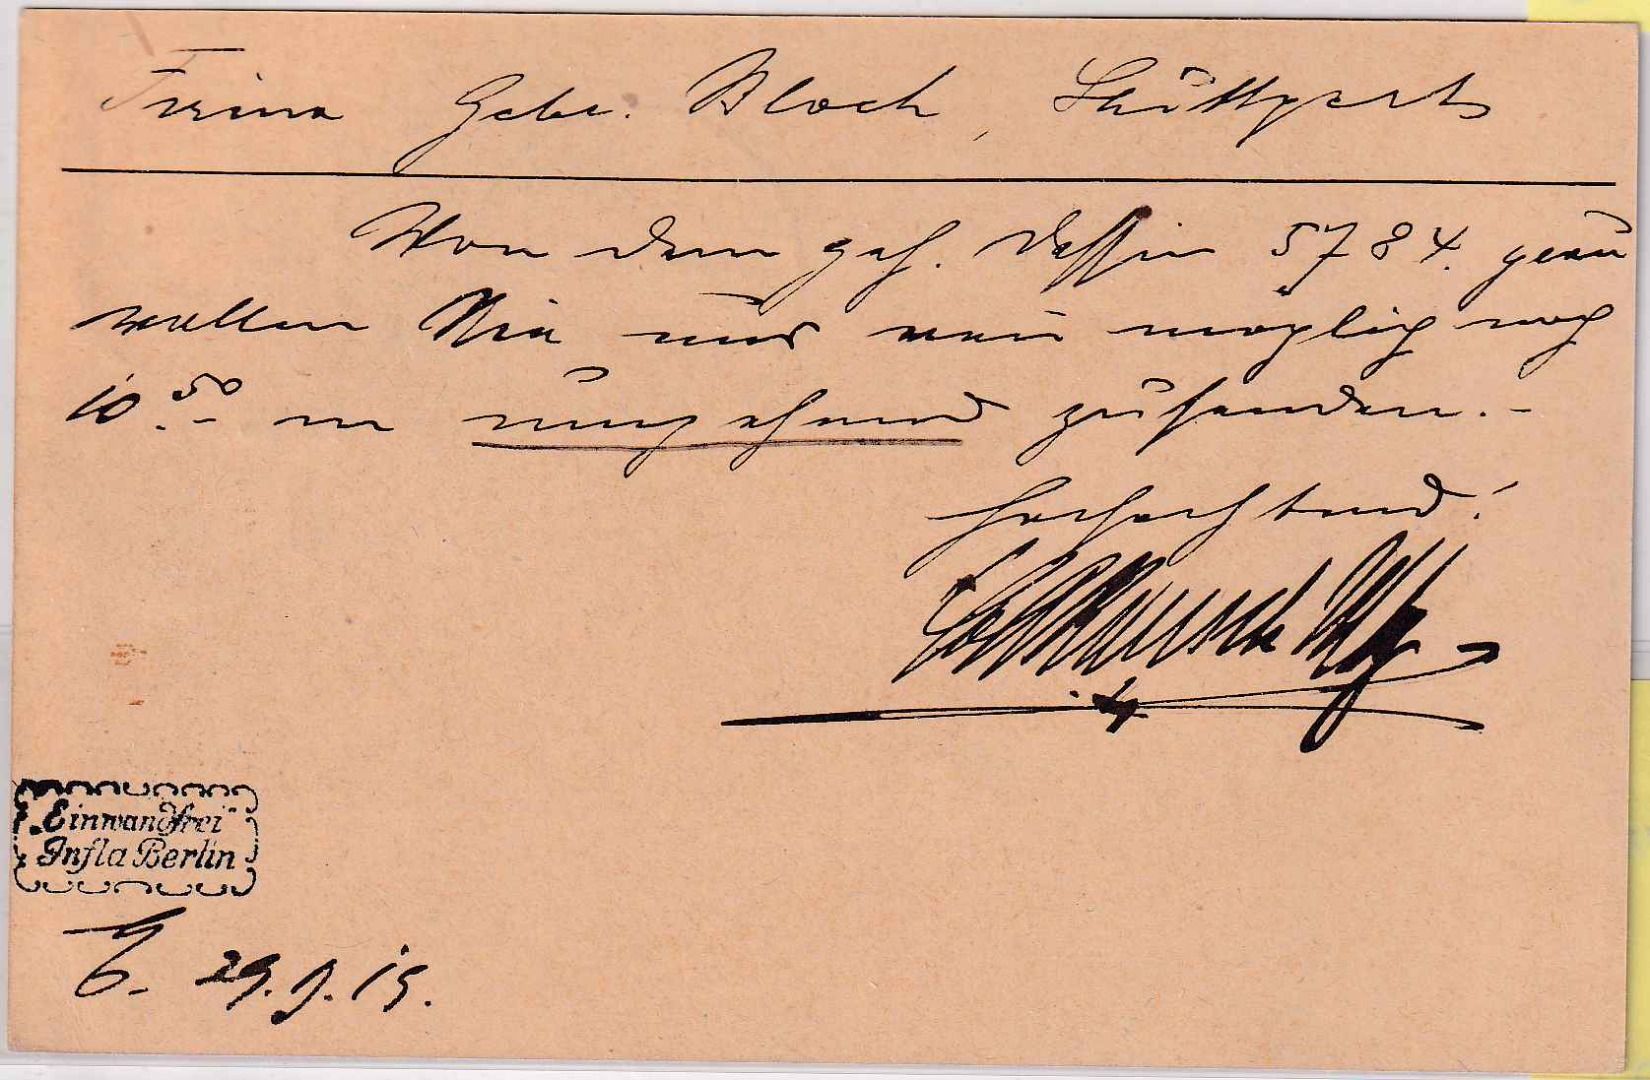 Firma Gebr. Bloch, Stuttgart
Von dem geh. Dessin 5784. grau
wollen Sie mir wenn möglich noch
10.50 m umgehend zusenden.-
Hochachtend!
"Einwandfrei"
Infla Berlin
E. 29.9.15.